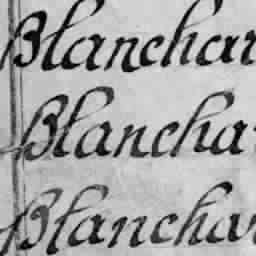 Blanchar
Blancha
Blanchar